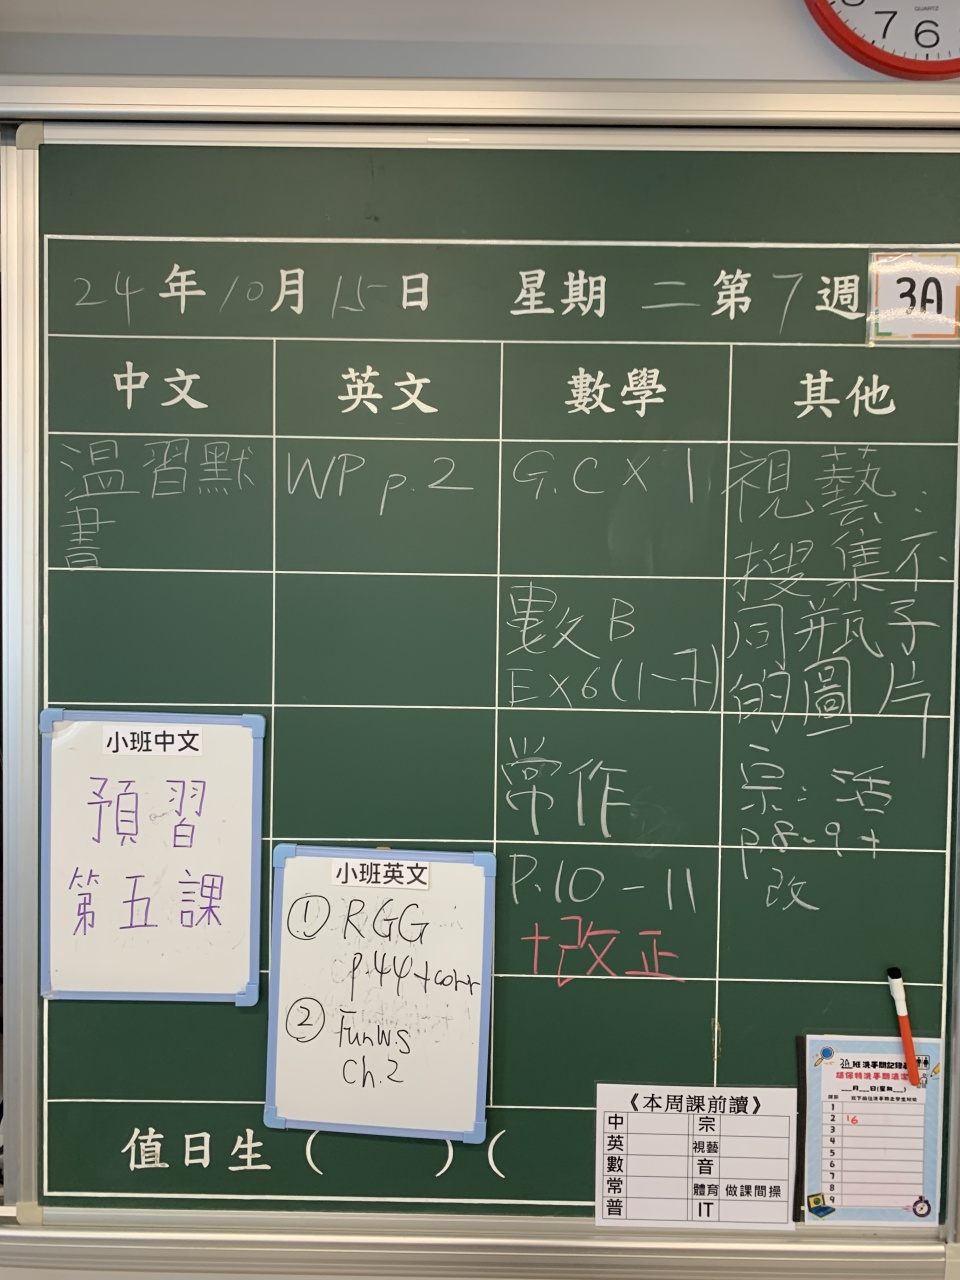 QUARTZ
7 6
24年10月15日 星期二第7週
3A
中文 英文 數學 其他
溫習默
書
WP p.2
G.C X 1
數B
EX6(1-7)
常作
P.10-11
+改正
視藝:
搜集不
同瓶子
的圖片
宗:活
p.8-9+
改
小班中文
預習
第五課
小班英文
① RGG
p.44+corr
② Fun W.S
Ch.2
值日生( )(
《本周課前讀》
中 宗
英 視藝
數 音
常 體育 做課間操
普 IT
3A班洗手間記錄
1
2 16
3
4
5
6
7
8
9